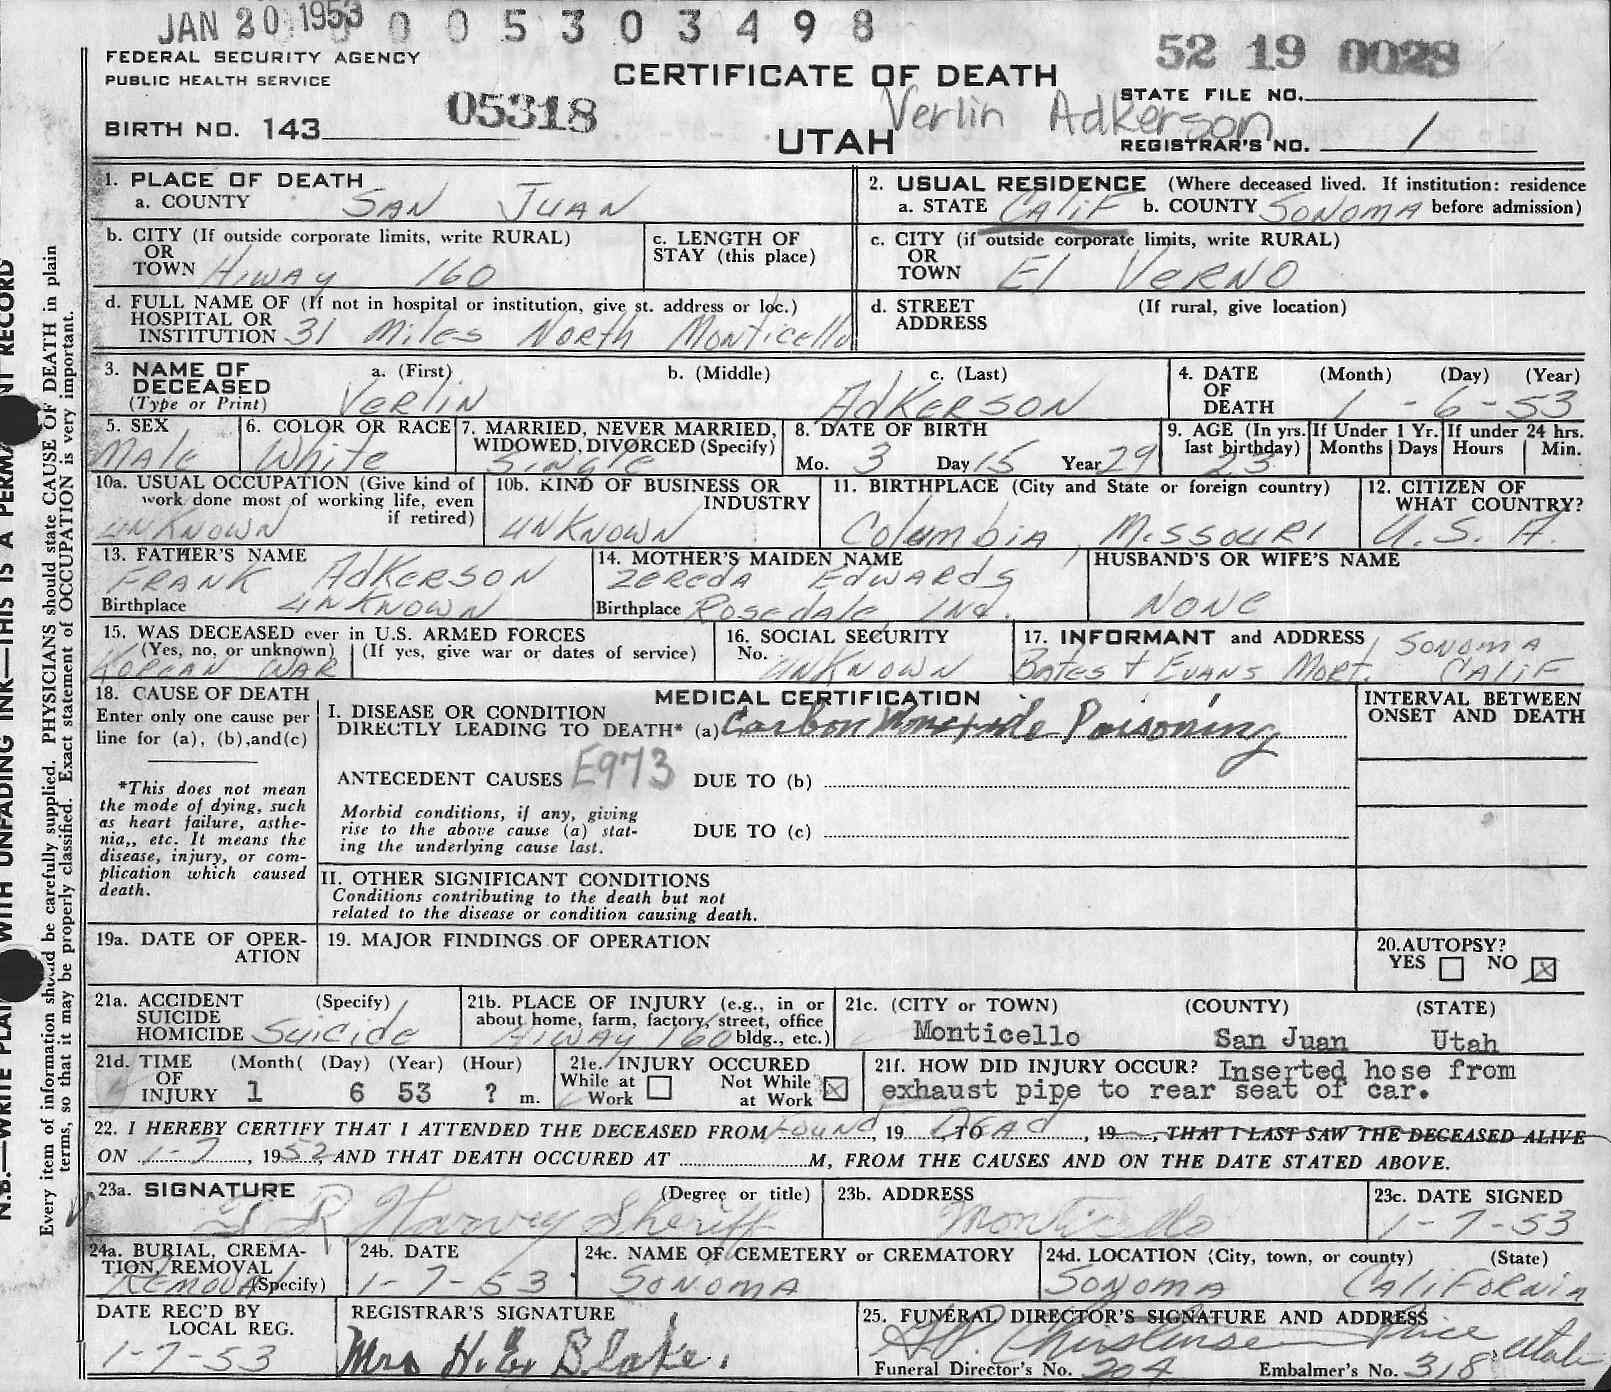 JAN 20 1953 0 0 5 3 0 3 4 9 8
FEDERAL SECURITY AGENCY
PUBLIC HEALTH SERVICE
CERTIFICATE OF DEATH
52 19 0028
STATE FILE NO.
BIRTH NO. 143
05318
UTAH
Verlin Adkerson
REGISTRAR'S NO. 1
1. PLACE OF DEATH
a. COUNTY SAN JUAN
2. USUAL RESIDENCE (Where deceased lived. If institution: residence
a. STATE CALIF b. COUNTY SONOMA before admission)
b. CITY (If outside corporate limits, write RURAL)
OR
TOWN HIWAY 160
c. LENGTH OF
STAY (this place)
c. CITY (if outside corporate limits, write RURAL)
OR
TOWN El VERNO
d. FULL NAME OF (If not in hospital or institution, give st. address or loc.)
HOSPITAL OR
INSTITUTION 31 Miles North Monticello
d. STREET (If rural, give location)
ADDRESS
3. NAME OF
DECEASED
(Type or Print)
a. (First) b. (Middle) c. (Last)
Verlin ADKERSON
4. DATE (Month) (Day) (Year)
OF
DEATH 1 - 6 - 53
5. SEX
Male
6. COLOR OR RACE
White
7. MARRIED, NEVER MARRIED,
WIDOWED, DIVORCED (Specify)
Single
8. DATE OF BIRTH
Mo. 3 Day 15 Year 29
9. AGE (In yrs.
last birthday)
23
If Under 1 Yr.
Months Days
If under 24 hrs.
Hours Min.
10a. USUAL OCCUPATION (Give kind of
work done most of working life, even
if retired)
UNKNOWN
10b. KIND OF BUSINESS OR
INDUSTRY
UNKNOWN
11. BIRTHPLACE (City and State or foreign country)
Columbia, Missouri
12. CITIZEN OF
WHAT COUNTRY?
U.S.A.
13. FATHER'S NAME
FRANK ADKERSON
Birthplace UNKNOWN
14. MOTHER'S MAIDEN NAME
ZEREDA EDWARDS
Birthplace Rosedale, IND.
HUSBAND'S OR WIFE'S NAME
NONE
15. WAS DECEASED ever in U.S. ARMED FORCES
(Yes, no, or unknown) (If yes, give war or dates of service)
KOREAN WAR
16. SOCIAL SECURITY
No. UNKNOWN
17. INFORMANT and ADDRESS SONOMA
Bates + Evans Mort. CALIF
18. CAUSE OF DEATH
Enter only one cause per
line for (a), (b),and(c)
*This does not mean
the mode of dying, such
as heart failure, asthe-
nia,, etc. It means the
disease, injury, or com-
plication which caused
death.
MEDICAL CERTIFICATION
I. DISEASE OR CONDITION
DIRECTLY LEADING TO DEATH* (a) Carbon Monoxide Poisoning
ANTECEDENT CAUSES E973 DUE TO (b)
Morbid conditions, if any, giving
rise to the above cause (a) stat-
ing the underlying cause last.
DUE TO (c)
II. OTHER SIGNIFICANT CONDITIONS
Conditions contributing to the death but not
related to the disease or condition causing death.
INTERVAL BETWEEN
ONSET AND DEATH
19a. DATE OF OPER-
ATION
19. MAJOR FINDINGS OF OPERATION
20.AUTOPSY?
YES NO X
21a. ACCIDENT (Specify)
SUICIDE
HOMICIDE Suicide
21b. PLACE OF INJURY (e.g., in or
about home, farm, factory, street, office
HIWAY 160 bldg., etc.)
21c. (CITY or TOWN) (COUNTY) (STATE)
Monticello San Juan Utah
21d. TIME (Month( (Day) (Year) (Hour)
OF
INJURY 1 6 53 ? m.
21e. INJURY OCCURED
While at Not While
Work at Work X
21f. HOW DID INJURY OCCUR? Inserted hose from
exhaust pipe to rear seat of car.
22. I HEREBY CERTIFY THAT I ATTENDED THE DECEASED FROM Found, 19 Dead TO, 19, THAT I LAST SAW THE DECEASED ALIVE
ON 1-7, 1952, AND THAT DEATH OCCURED AT M, FROM THE CAUSES AND ON THE DATE STATED ABOVE.
23a. SIGNATURE (Degree or title)
Harvey Sheriff
23b. ADDRESS
Monticello
23c. DATE SIGNED
1-7-53
24a. BURIAL, CREMA-
TION, REMOVAL
(Specify)
REMOVAL
24b. DATE
1-7-53
24c. NAME OF CEMETERY or CREMATORY
SONOMA
24d. LOCATION (City, town, or county) (State)
SONOMA CALIFORNIA
DATE REC'D BY
LOCAL REG.
1-7-53
REGISTRAR'S SIGNATURE
Mrs H. E. Blake.
25. FUNERAL DIRECTOR'S SIGNATURE AND ADDRESS
Christensen Price Utah
Funeral Director's No. 204 Embalmer's No. 318
Every item of information should be carefully supplied. PHYSICIANS should state CAUSE OF DEATH in plain
terms, so that it may be properly classified. Exact statement of OCCUPATION is very important.